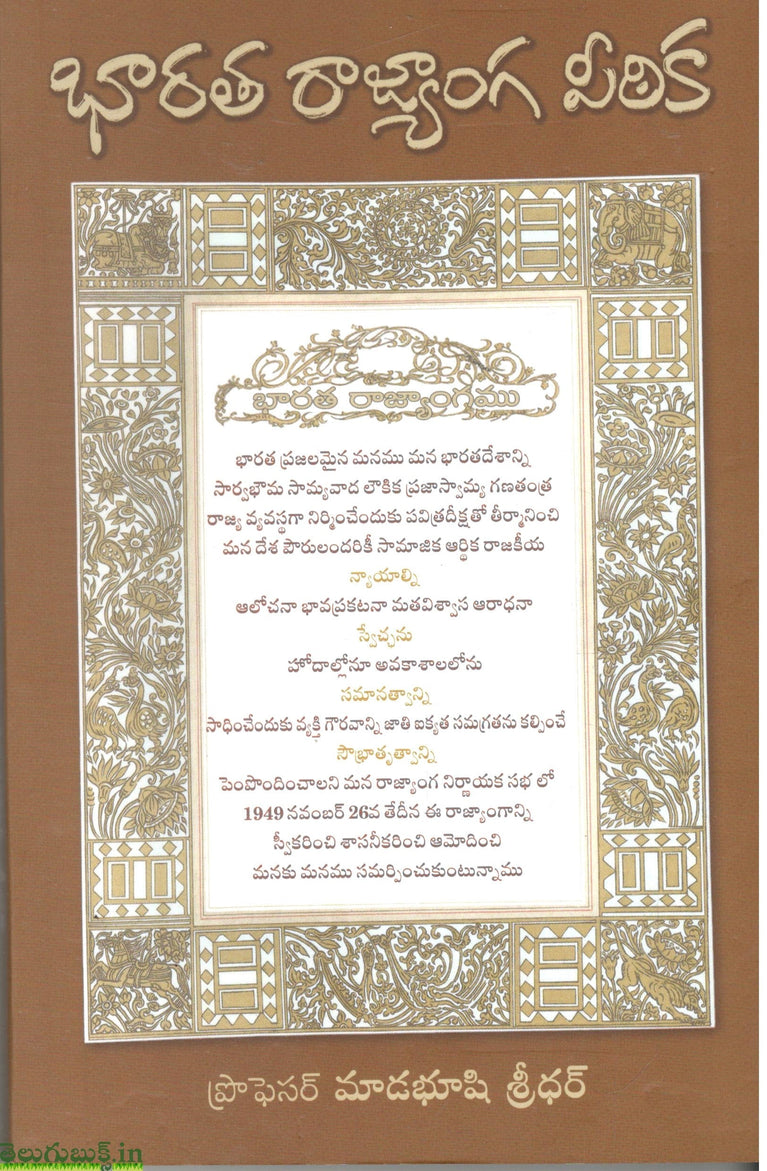 భారత రాజ్యాంగ పీఠిక
భారత రాజ్యాంగము
భారత ప్రజలమైన మనము మన భారతదేశాన్ని
సార్వభౌమ సామ్యవాద లౌకిక ప్రజాస్వామ్య గణతంత్ర
రాజ్య వ్యవస్థగా నిర్మించేందుకు పవిత్రదీక్షతో తీర్మానించి
మన దేశ పౌరులందరికీ సామాజిక ఆర్థిక రాజకీయ
న్యాయాల్ని
ఆలోచనా భావప్రకటనా మతవిశ్వాస ఆరాధనా
స్వేచ్ఛను
హోదాల్లోనూ అవకాశాలలోను
సమానత్వాన్ని
సాధించేందుకు వ్యక్తి గౌరవాన్ని జాతి ఐక్యత సమగ్రతను కల్పించే
సౌభ్రాతృత్వాన్ని
పెంపొందించాలని మన రాజ్యాంగ నిర్ణాయక సభ లో
1949 నవంబర్ 26వ తేదీన ఈ రాజ్యాంగాన్ని
స్వీకరించి శాసనీకరించి ఆమోదించి
మనకు మనము సమర్పించుకుంటున్నాము
ప్రొఫెసర్ మాడభూషి శ్రీధర్
తెలుగుబుక్స్.in